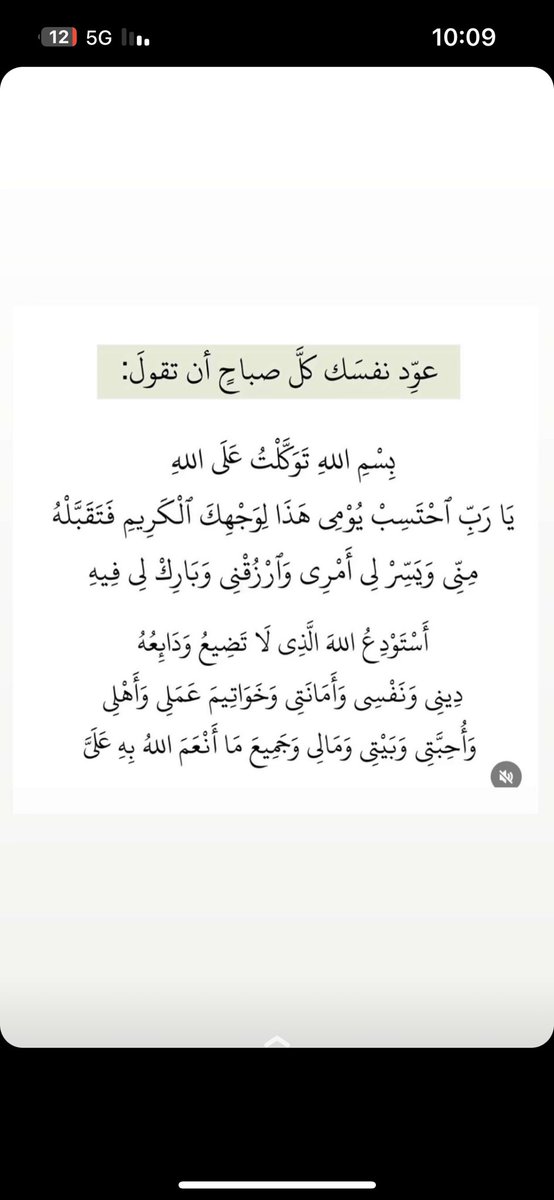 12 5G 10:09
عوِّد نفسَك كلَّ صباحٍ أن تقولَ:
بِسْمِ اللهِ تَوَكَّلْتُ عَلَى اللهِ
يَا رَبِّ ٱحْتَسِبْ يُوْمِى هَذَا لِوَجْهِكَ ٱلْكَرِيمِ فَتَقَبَّلْهُ
مِنِّى وَيَسِّرْ لِى أَمْرِى وَٱرْزُقْنِى وَبَارِكْ لِى فِيهِ
أَسْتَوْدِعُ اللهَ الَّذِى لَا تَضِيعُ وَدَايِعُهُ
دِينِى وَنَفْسِى وَأَمَانَتِى وَخَوَاتِيمَ عَمَلِى وَأَهْلِى
وَأُحِبَّتِى وَبَيْتِى وَمَالِى وَجَمِيعَ مَا أَنْعَمَ اللهُ بِهِ عَلَىَّ